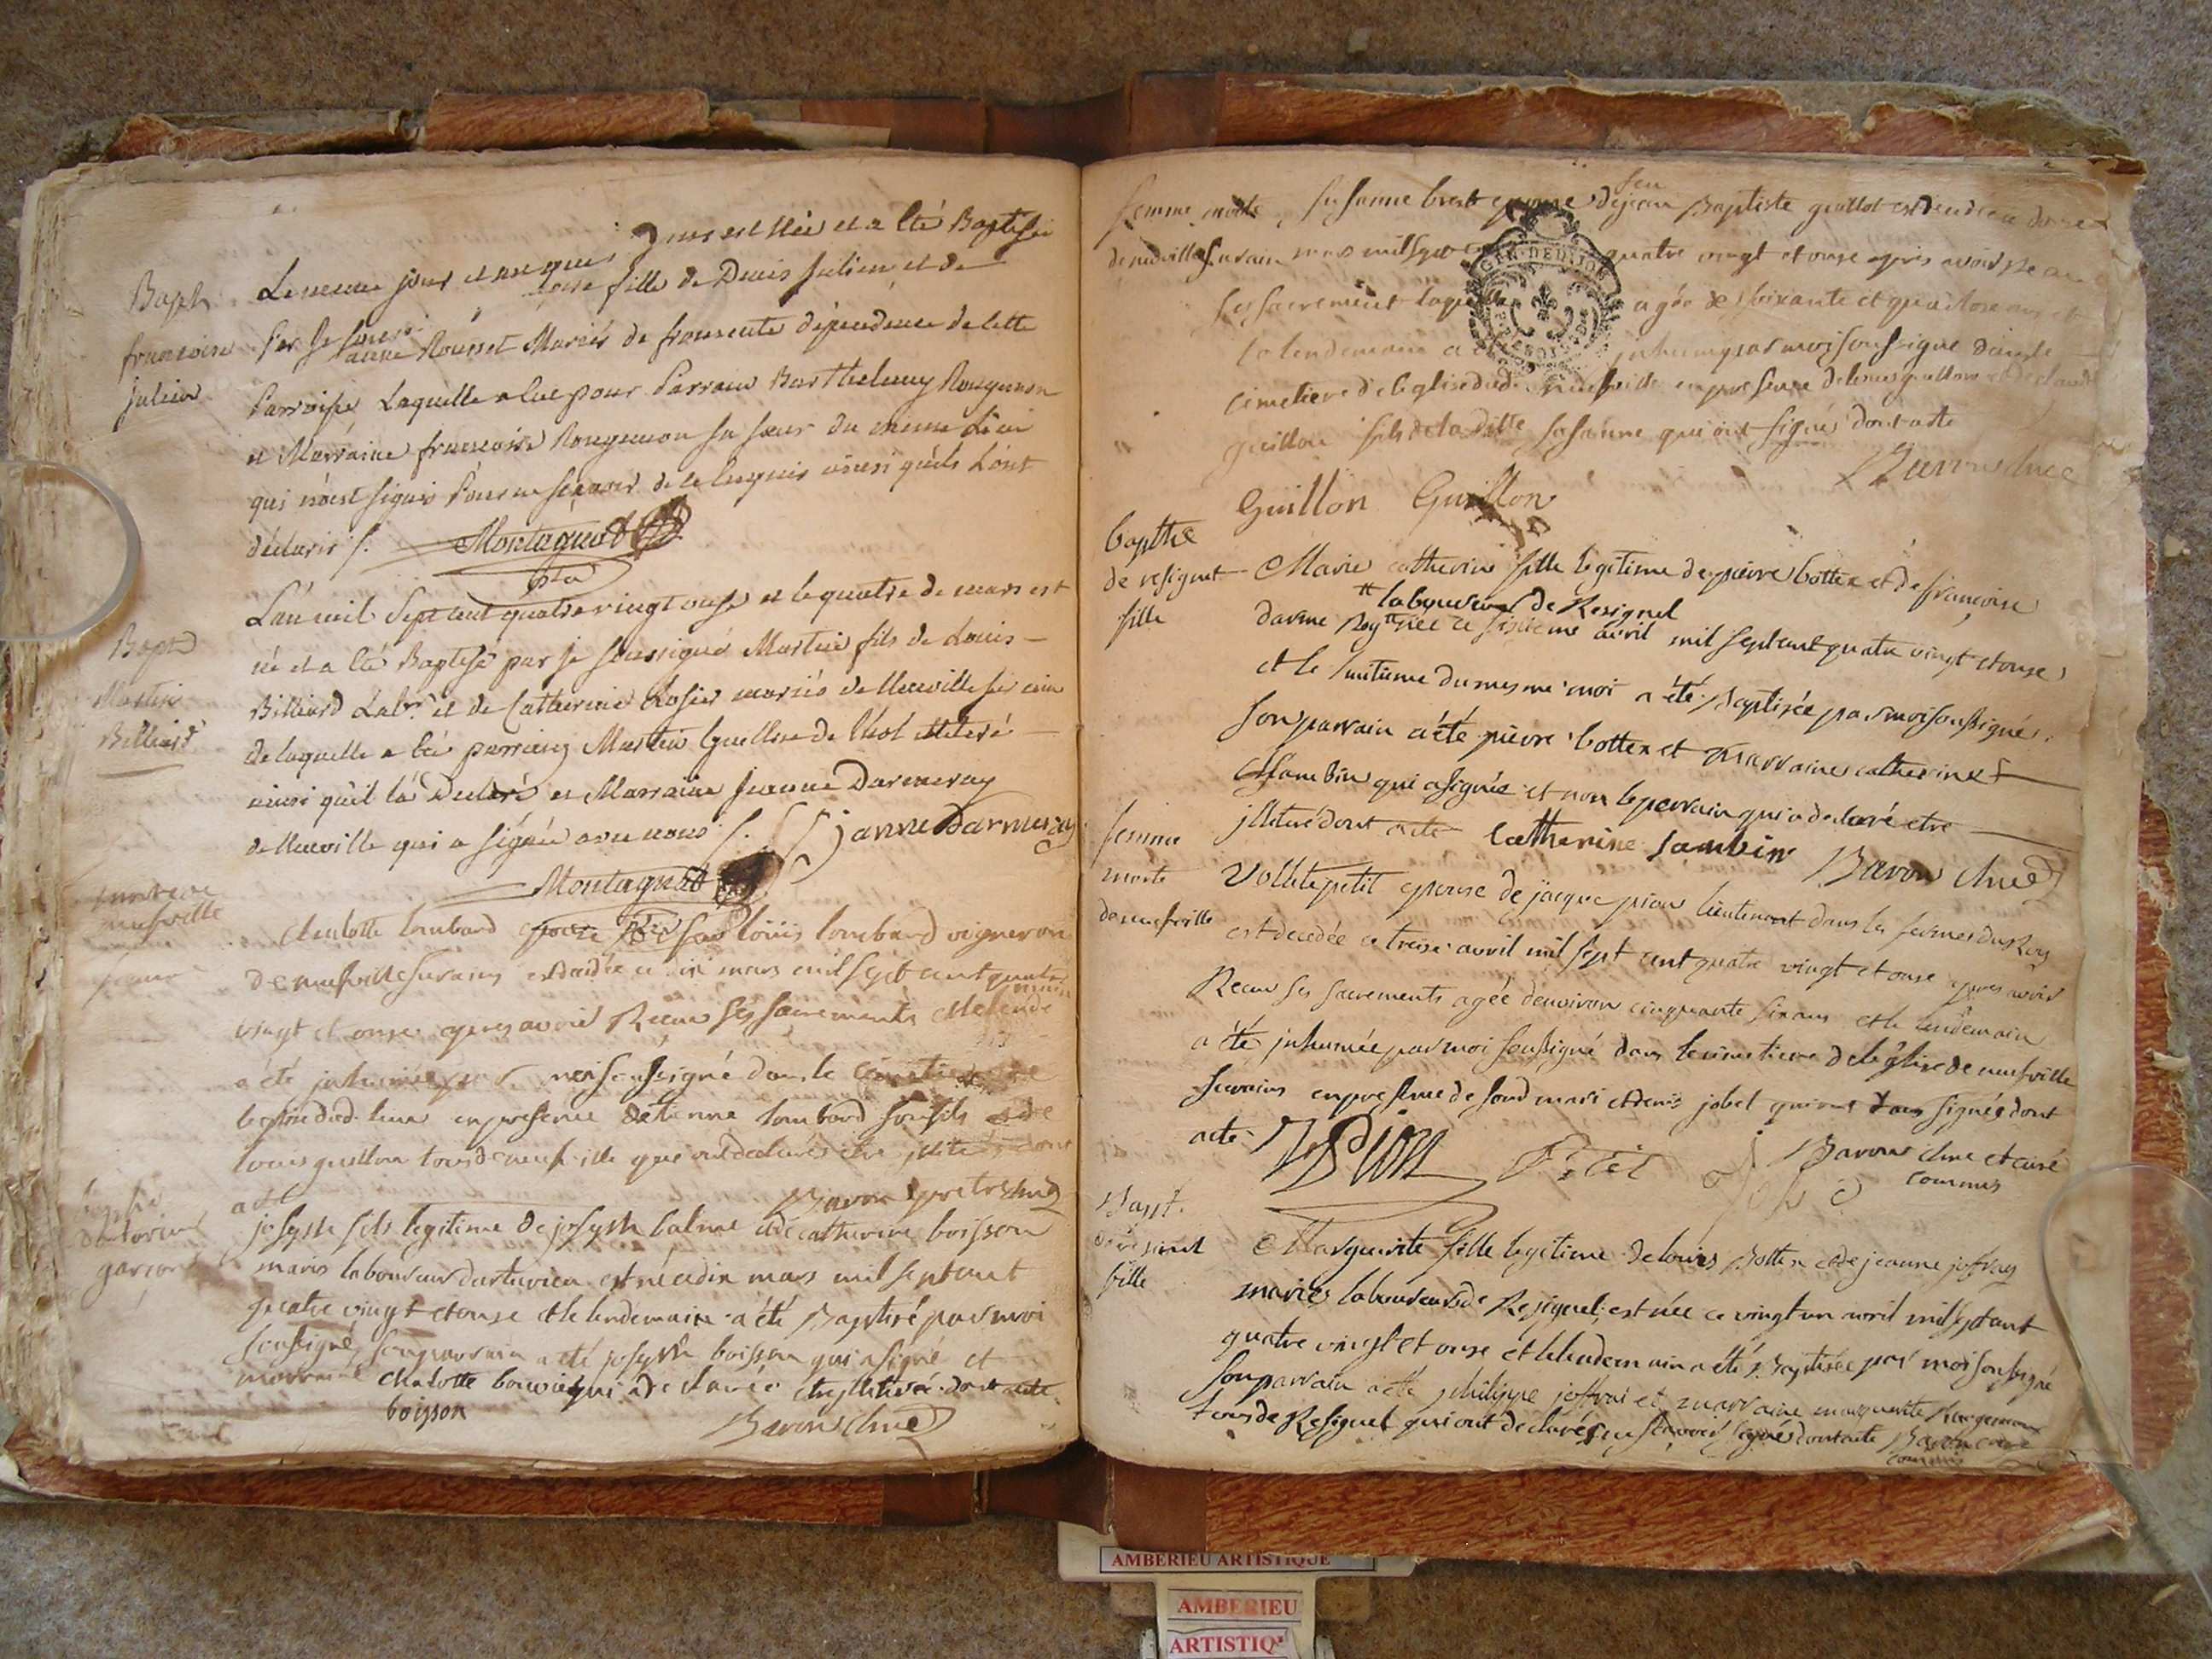 Bapt.
françoise
Julien
Le meme jour et an que dessus est née et a été Baptisée
par Je soussi
fille de Denis Julien et de
anne Rousset Mariés de fromente dépendance de cette
Parroisse Laquelle a eue pour Parrain Barthelemy Rougemon
et Marraine francoise Rougemon sa sœur du meme Lieu
qui n'ont signés Pour ne sçavoir de ce enquis ainsi qu'ils L'ont
déclaré /.
Montagnat
Bapt
Martin
Billiard
L'an mil sept cent quatre vingt onze et le quatre de mars est
né et a été Baptisé par je soussigné Martin fils de Louis
Billiard Labr. et de Catherine Rosier mariés de Neuville sur ain
de laquelle a été parraing Martin Guillon de Chol illiteré
ainsi qu'il l'a Declaré et Marraine Jeanne Darmeray
de Neuville qui a signée avec nous /. janne Darmeray
Montagnat
neufville
femme
charlotte lombard louis lombard vigneron
de neufville surains est decédée ce mars mil sept cent quatre
vingt et onze apres avoir Recue ses sacrements et le lende
main
a été inhumée moi soussigné dans le cimetiere
en presence d'etienne lombard son fils et de
louis guillon tous de neufville qui ont declarés etre
Baron pretre
garçon
joseph fils legitime de joseph balme et de catherine boisson
mariés laboureur est né ce dix mars mil sept cent
quatre vingt et onze et le lendemain a été Baptisé par moi
soussigné, son parrain a été joseph boisson qui a signé et
marraine charlotte bouvier qui a declarée etre illiterée dont acte
boisson
Baron
femme morte
de neufville
susanne epouse de feu jean Baptiste guillot est decedée
surain mil sept quatre vingt et onze après avoir
ses sacrement agée de soixante et quatorze
le lendemain a inhumé par moi soussigne dans le
cimetiere de l'eglise dud. neufville en presence de
guillon fils de la ditte susanne qui ont signés dont acte
GEN. DE DIJON
Guillon Guillon
Baron
bapthe
de resignel
fille
Marie catherine fille legitime de pierre bottex et de françoise
laboureur de Resignel
née ce sixieme avril mil sept cent quatre vingt et onze
et le huitieme du mesme moi a été Baptisée par moi soussigné.
son parrain a été pierre bottex et marraine catherine
qui a signée et non le parrain qui a declaré etre
illiteré dont acte catherine sambin Baron
femme
morte
de neufville
petit epouse de jacque pion lieutenant dans les fermes du Roy
est decedée ce treze avril mil sept cent quatre vingt et onze apres avoir
Recu ses sacrements agée d'environ cinquante six ans et le lendemain
a été inhumée par moi soussigné dans le cimetiere de l'eglise de neufville
surains en presence de soud mari et denis jobel qui ont tous signés dont
acte. Pion Baron et curé
commis
Bapt.
de resinel
fille
Marguerite fille legitime de louis Bottex et de jeanne jofray
mariés laboureurs de Resignel est née ce vingt un avril mil sept cent
quatre vingt et onze et le lendemain a été Baptisée par moi soussigné
son parrain a été philippe joffrai et marraine marguerite Rougemon
tous de Resignel qui ont declarés ne scavoir signés dont acte Baron curé
commis
AMBERIEU ARTISTIQUE
AMBERIEU
ARTISTIQ